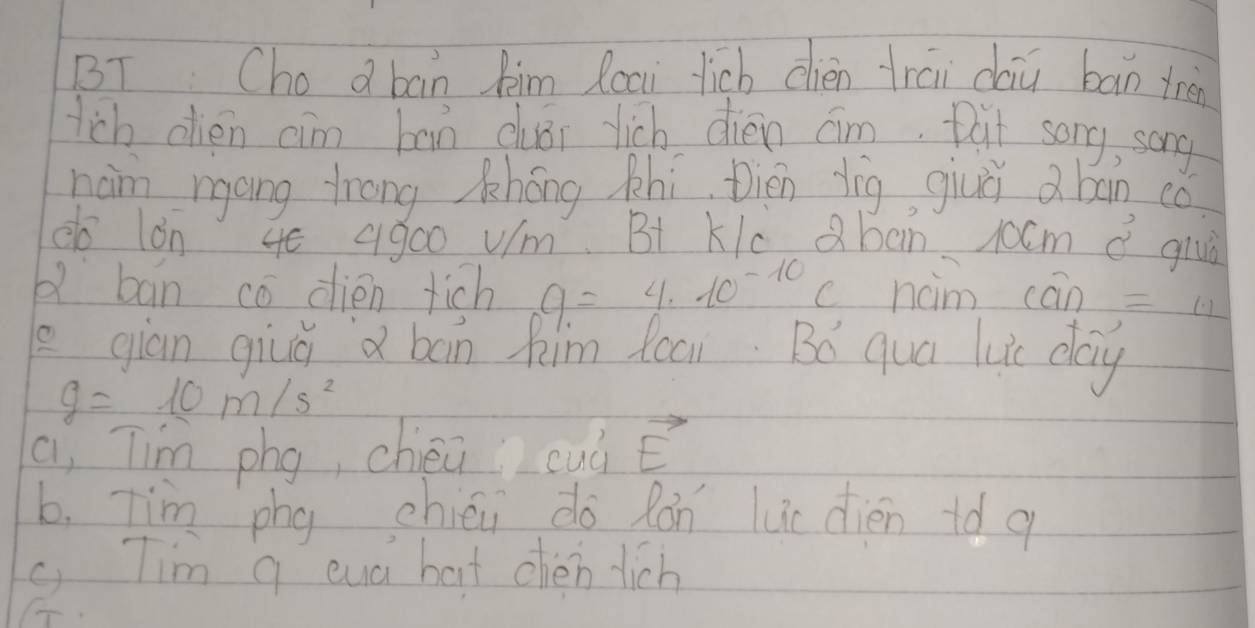 BT: Cho 2 bản kim loại tích điện trái dấu bản trên
tích điện âm bản dưới tích điện âm. Đặt song song
nằm ngang trong không khí. Điện trg giữa 2 bản có
độ lớn 4900 V/m. Bt k/c 2 bản 10cm ở giữa
2 bản có điện tích q = 4.10⁻¹⁰ C nằm cân =
gian giữa 2 bản kim loại. Bỏ qua lực đẩy
g = 10 m/s²
a, Tìm phg, chiều của E⃗
b. Tìm phg chiều độ lớn lực điện td q
c) Tìm q của hạt điện tích